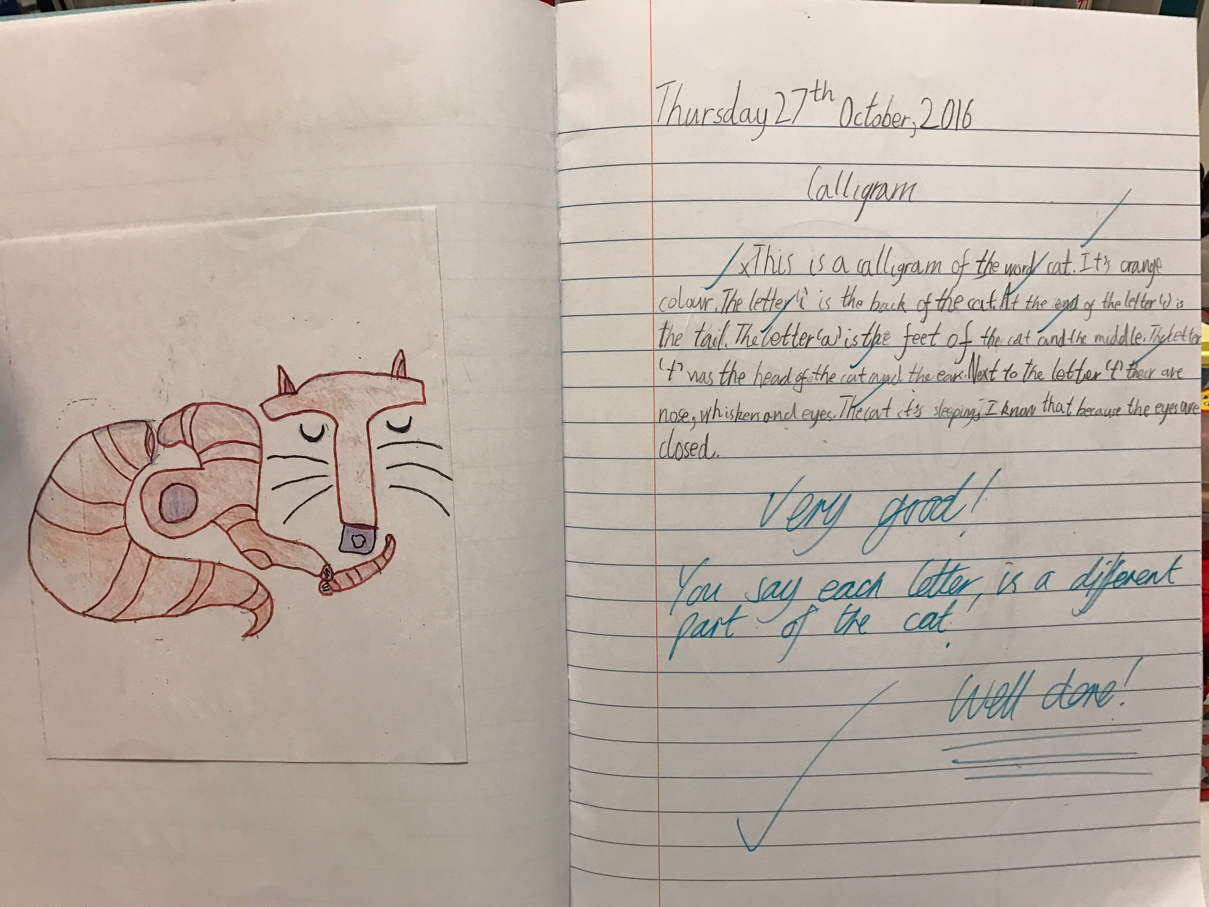 Thursday 27th October, 2016
Calligram
This is a calligram of the word cat. It's orange
colour. The letter 'c' is the back of the cat. At the end of the letter 'c' is
the tail. The letter 'a' is the feet of the cat and the middle. The letter
't' was the head of the cat and the ears. Next to the letter 't' their are
nose, whisker and eyes. The cat it's sleeping, I know that because the eyes are
closed.
Very good!
You say each letter, is a different
part of the cat!
Well done!